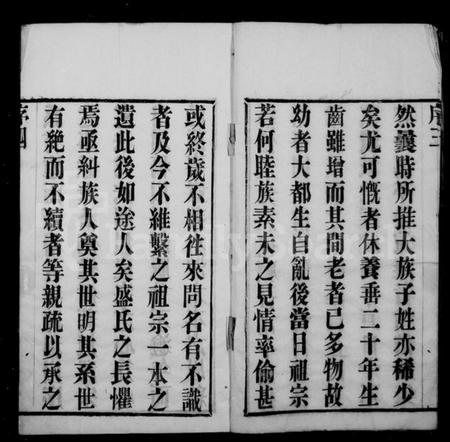 序三
然曩時所推大族子姓亦稀少
矣尤可慨者休養垂二十年生
齒雖增而其間老者已多物故
幼者大都生自亂後當日祖宗
若何睦族素未之見情率偷甚
或終歲不相往來問名有不識
者及今不維繫之祖宗一本之
遺此後如途人矣盛氏之長懼
焉亟糾族人奠其世明其系世
有絶而不續者等親疏以承之
序四